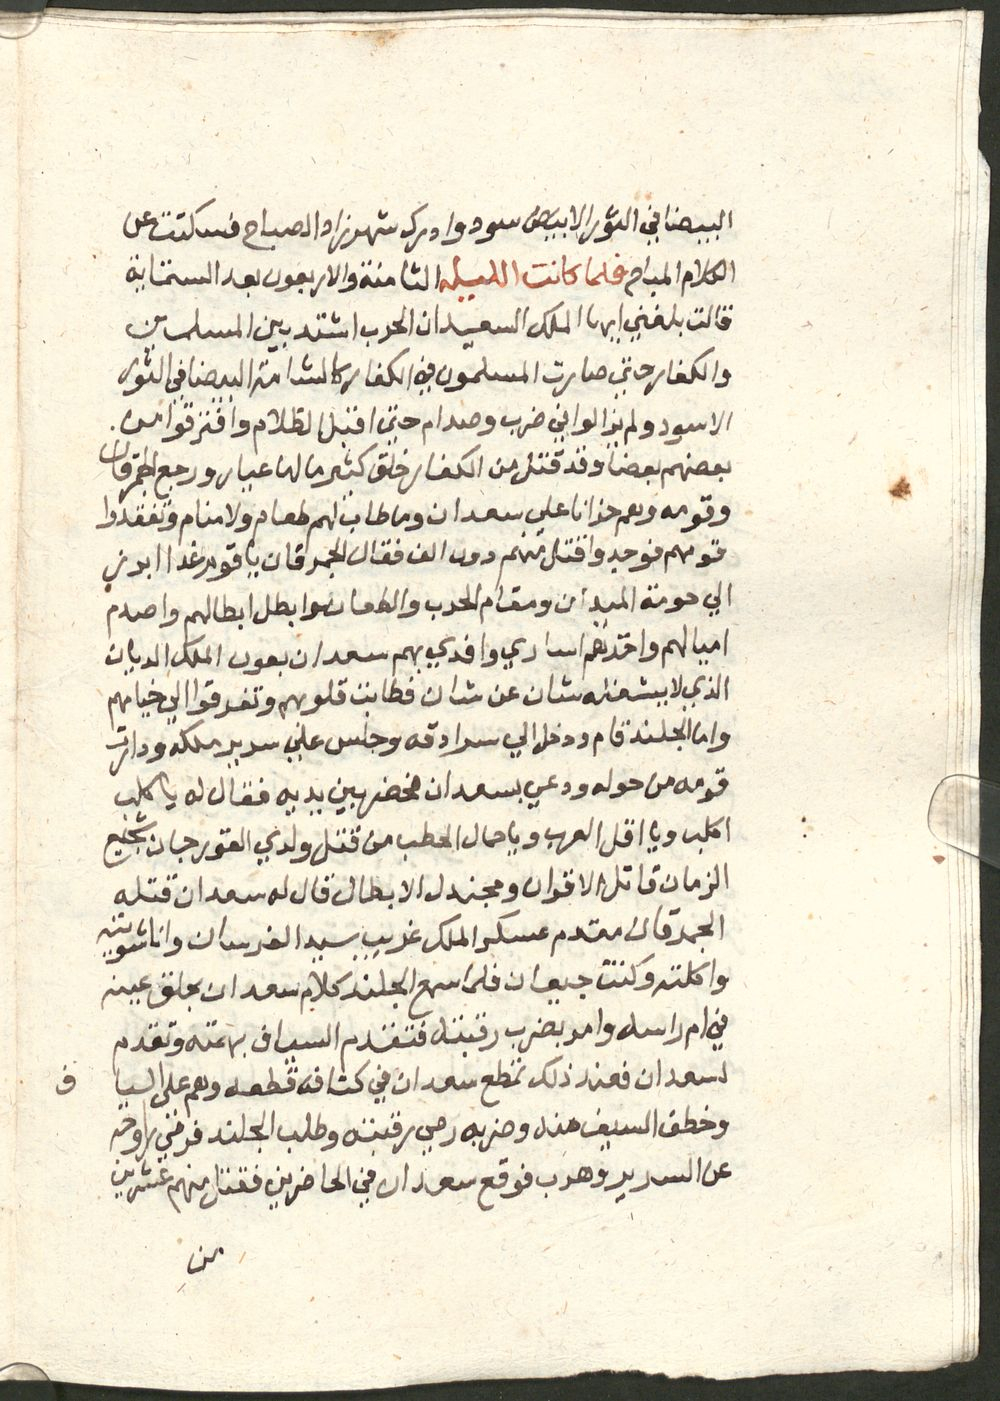 البيضا في الثور الابيض سود وادرك شهرزاد الصباح فسكتت عن
الكلام المباح فلما كانت الليله الثامنة والاربعون بعد الستماية
قالت بلغني ايها الملك السعيد ان الحرب اشتد بين المسلمين
والكفار حتي صارت المسلمون في الكفار كالشامة البيضا في الثور
الاسود ولم يزالوا في ضرب وصدام حتي اقبل الظلام وافترقوا من
بعضهم بعضا وقد قتل من الكفار خلق كثير ما لها عيار ورجع الجمرقان
وقومه وهم حزانا علي سعدان وما طاب لهم طعام ولا منام وتفقدوا
قومهم فوجدوا قتل منهم دون الف فقال الجمرقان يا قوم غدا ابرز
الي حومة الميدان ومقام الحرب والطعان وابطل ابطالهم واصدم
اميالهم واخذهم اساري وافدي بهم سعدان بعون الملك الديان
الذي لا يشغله شان عن شان فطابت قلوبهم وتفرقوا الي خيامهم
واما الجلند قام ودخل الي سرادقه وجلس علي سرير ملكه ودارت
قومه من حوله ودعي بسعدان فحضر بين يديه فقال له يا كلب
اكلب ويا اقل العرب ويا حمال الحطب من قتل ولدي القورجان شجيع
الزمان قاتل الاقران ومجندل الابطال قال له سعدان قتله
الجمرقان مقدم عسكر الملك غريب سيد الفرسان وانا شويته
واكلته وكنت جيعان فلما سمع الجلند كلام سعدان بحلق عينه
في ام راسه وامر بضرب رقبته فتقدم السياف بهمته وتقدم
لسعدان فعند ذلك تمطع سعدان في كتافه قطعه وهم علي السيا
ف
وخطف السيف منه وضربه رمي رقبته وطلب الجلند فرمي روحه
عن السرير وهرب فوقع سعدان في الحاضرين فقتل منهم عشرين
من